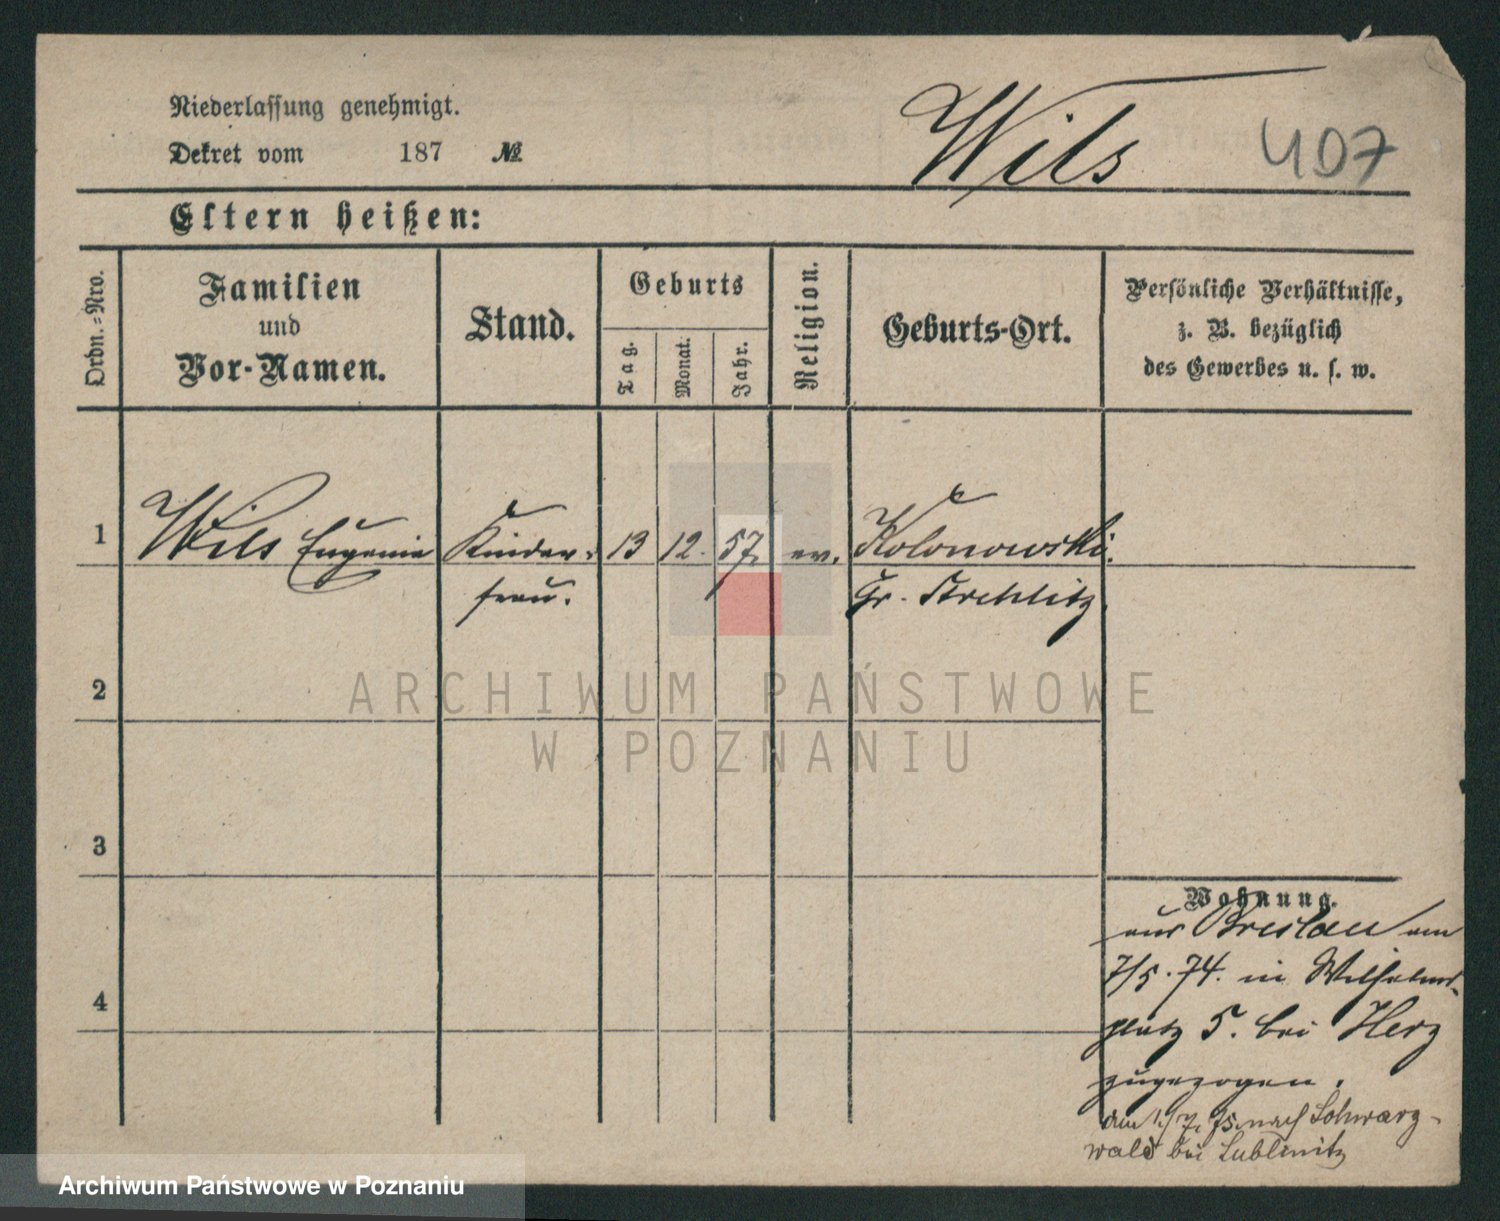 Niederlassung genehmigt.
Dekret vom 187 №
Wils 407
Eltern heißen:
Ordn.=Nro.
Familien
und
Vor-Namen.
Stand.
Geburts
Tag.
Monat.
Jahr.
Religion.
Geburts-Ort.
Persönliche Verhältnisse,
z. B. bezüglich
des Gewerbes u. s. w.
1 Wils Eugenie Kinder- 13 12. 57. ev. Kolonowski.
frau. Gr. Strehlitz.
2
ARCHIWUM PAŃSTWOWE
W POZNANIU
3
Wohnung.
aus Breslau am
7/5. 74. in Wilhelms-
4
platz 5. bei Herz
zugezogen.
den 1./7. 75. nach Schwarz-
wald bei Lublinitz
Archiwum Państwowe w Poznaniu